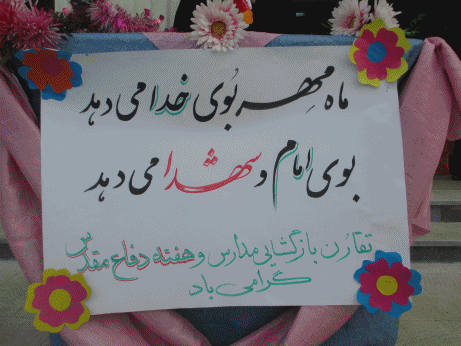 ماه مهر بُوی خدا می دهد
بوی امام و شهدا می دهد
تقارُن بازگشایی مدارس و هفته دفاع مقدس
گرامی باد